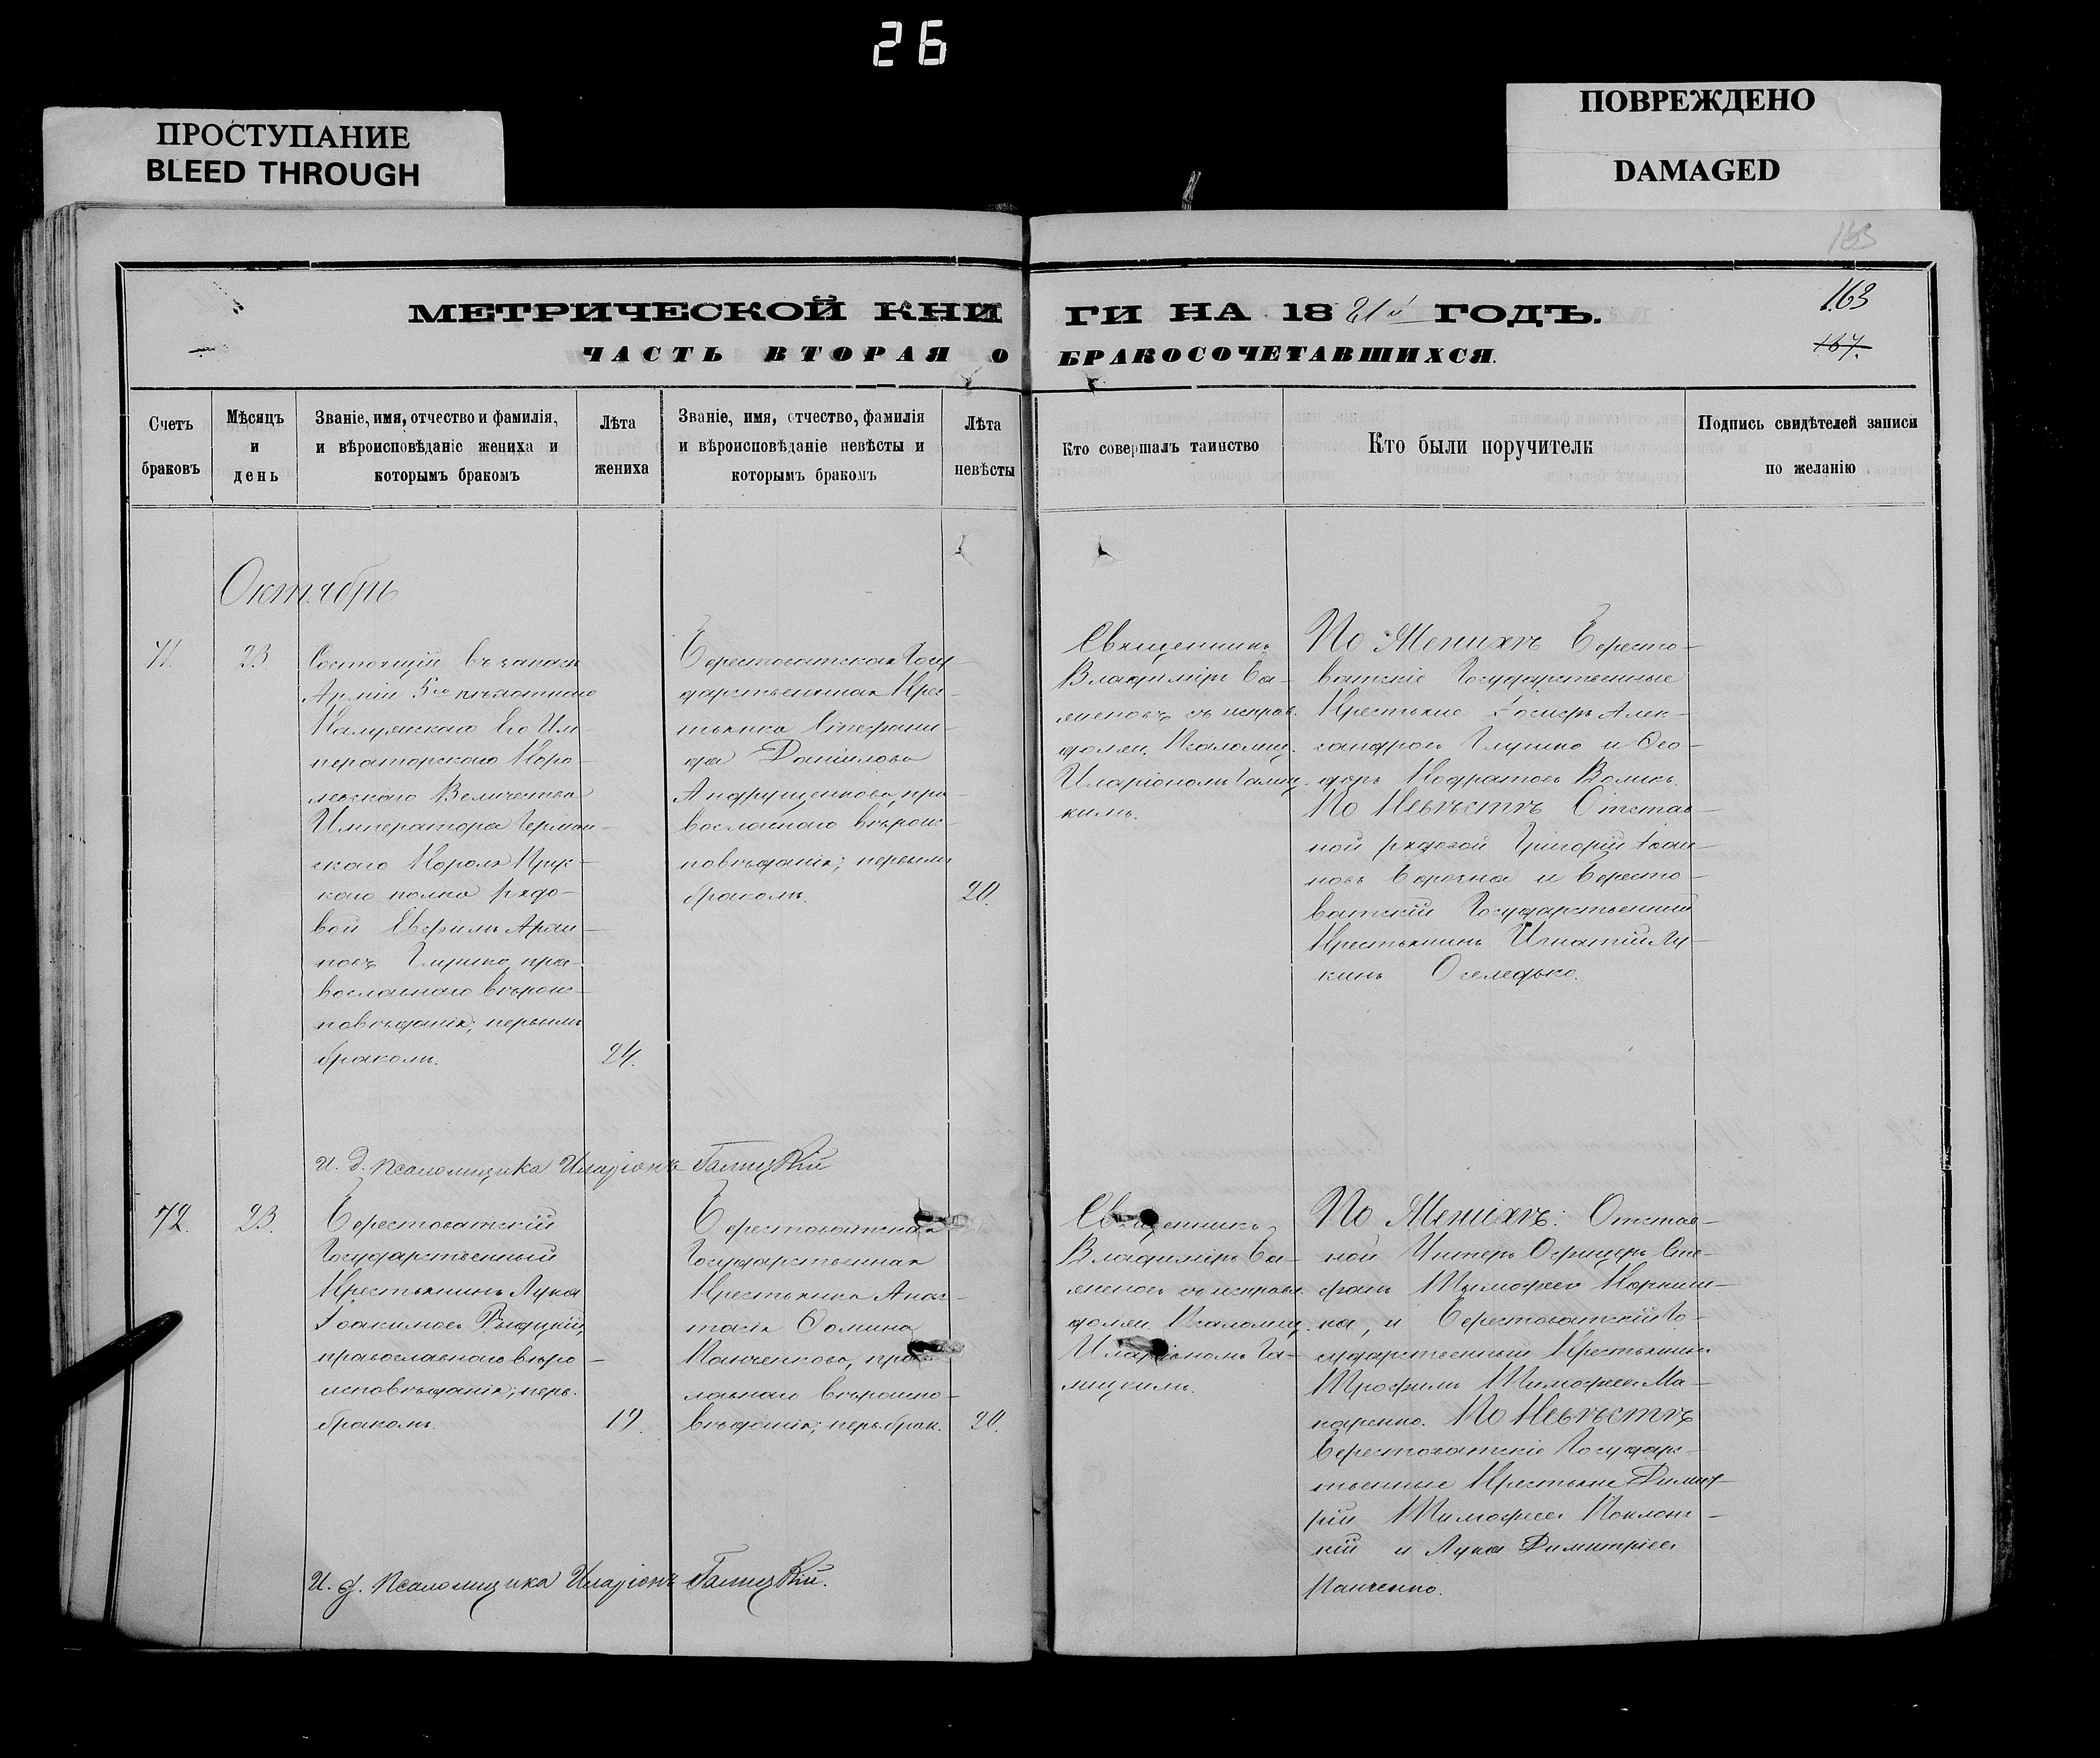 26
ПРОСТУПАНИЕ
BLEED THROUGH
ПОВРЕЖДЕНО
DAMAGED
163
163
167.
МЕТРИЧЕСКОЙ КНИГИ НА 1881й ГОДЪ.
ЧАСТЬ ВТОРАЯ О БРАКОСОЧЕТАВШИХСЯ.
Счетъ
браковъ
Мѣсяцъ
и
день
Званіе, имя, отчество и фамилія,
и вѣроисповѣданіе жениха и
которымъ бракомъ
Лѣта
жениха
Званіе, имя, отчество, фамилія
и вѣроисповѣданіе невѣсты и
которымъ бракомъ
Лѣта
невѣсты
Кто совершалъ таинство
Кто были поручители
Подпись свидѣтелей записи
по желанію
Октябрь
71.
23
Состоящій въ запасѣ
Арміи 5го пѣхотнаго
Калужскаго Его Им-
ператорскаго Коро-
левскаго Величества
Императора Герман-
скаго Короля Прус-
каго полка рядо-
вой Евфимъ
Глушко, пра-
вославнаго вѣроис-
повѣданія; первымъ
бракомъ.
24.
Берестоватская Госу-
дарственная Крес-
тьянка Стефани-
да Даніилова
Андрущенкова, пра-
вославнаго вѣроис-
повѣданія; первымъ
бракомъ.
20.
Священникъ
Владиміръ Са-
меновъ съ исправ.
должн. Псаломщ.
Иларіономъ Галиц-
кимъ.
По Женихѣ Бересто-
ватскіе Государственные
Крестьяне Іосифъ Алек-
сандровъ Глушко и Ѳео-
доръ Кодратовъ Воликъ.
По Невѣстѣ Отстав-
ной рядовой Григорій Іоан-
новъ Сорочка и Бересто-
ватскій Государственный
Крестьянинъ Игнатій Лу-
кинъ Оселедько.
И. д. псаломщика Иларіонъ Галицкій
72.
23.
Берестоватскій
Государственный
Крестьянинъ Лука
Іоакимовъ
православнаго вѣро-
исповѣданія; перв.
бракомъ.
19.
Берестоватская
Государственная
Крестьянка Анас-
тасія Ѳомина
Панченкова, право-
лавнаго вѣроиспо-
вѣданія; перв. брак.
20.
Священникъ
Владиміръ Са-
меновъ съ исправл.
должн. Псаломщ.
Иларіономъ Га-
лицкимъ.
По Женихѣ: Отстав-
ной Унтеръ Офицеръ Сте-
фанъ Тимофеевъ Корнии-
ка, и Берестоватскій Го-
сударственный Крестьянинъ
Трофимъ Тимофеевъ Ма-
каренко. По Невѣстѣ
Берестоватскіе Государс-
твенные Крестьяне Димит-
рій Тимофеевъ Поклонс-
кій и Лука Димитріевъ
Панченко.
И. д. псаломщика Иларіонъ Галицкій.